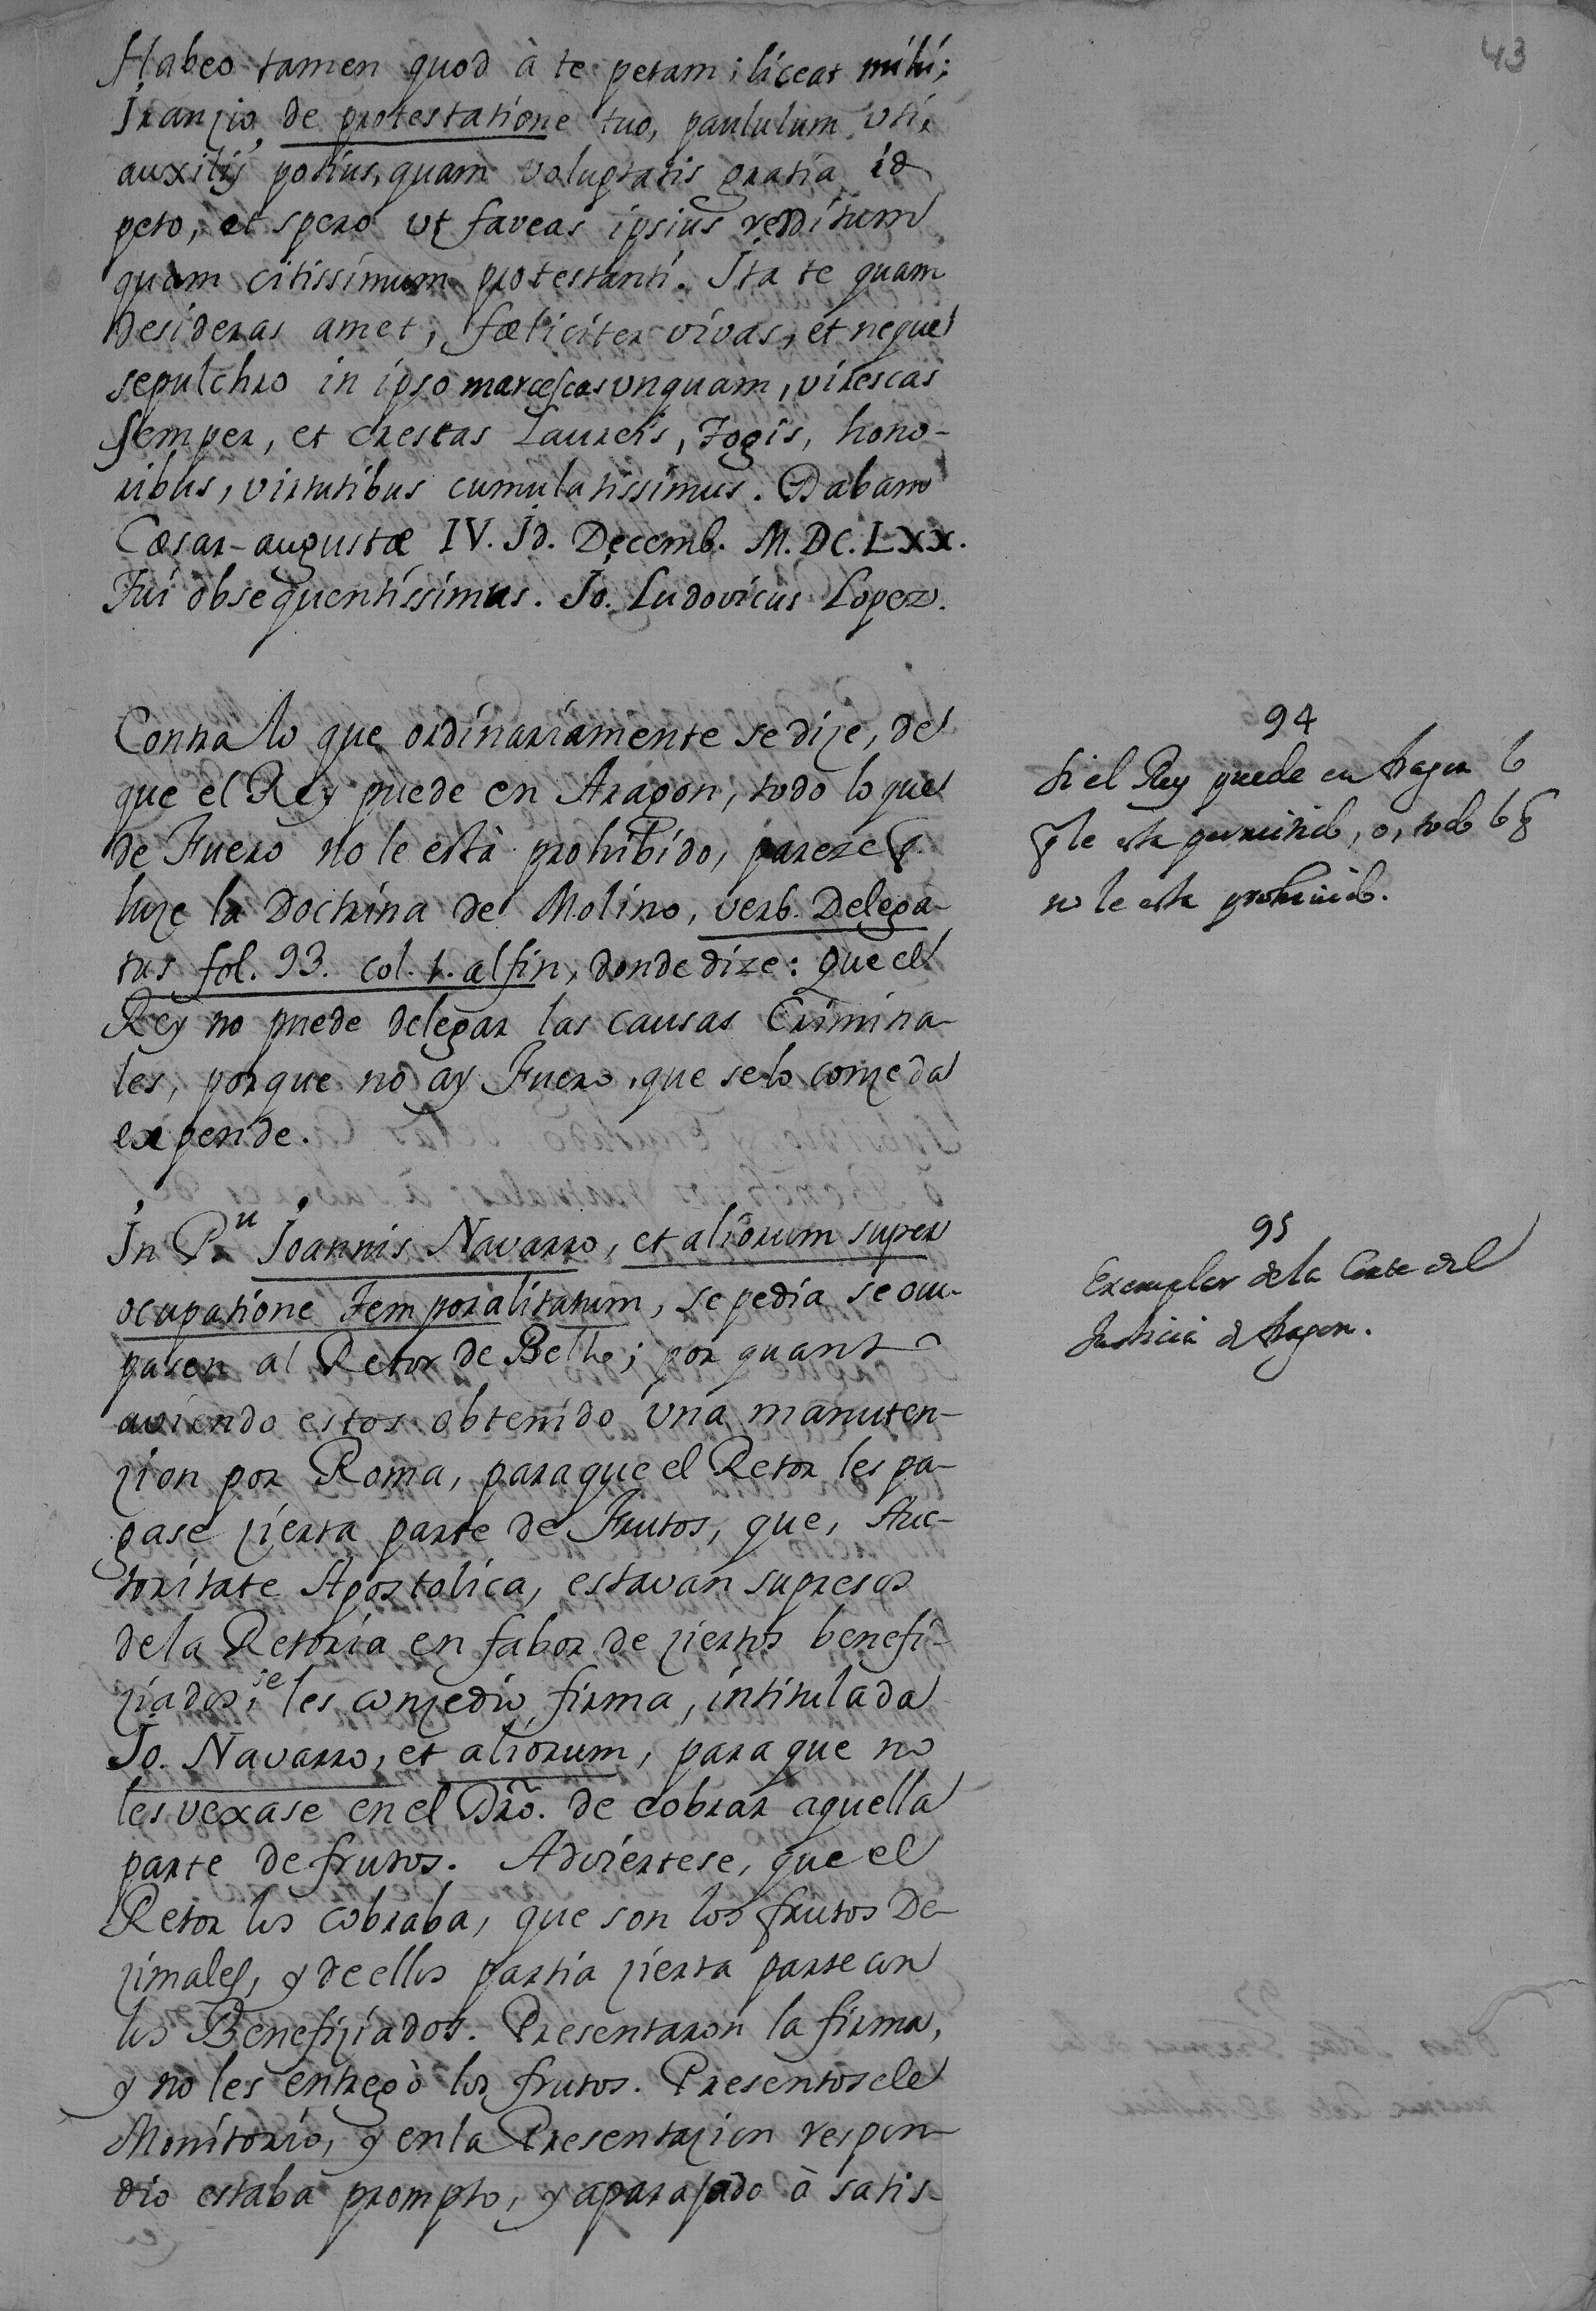 43
Habeo tamen quod à te petam; liceat mihi;
Iranzio, de protestatione tuo, paululum uti,
auxilij potius, quam voluptatis gratia id
peto, et spero ut faveas ipsius redditum
quam citissimum protestanti. Ita te quam
desideras amet, fæliciter vivas, et neque
sepulchro in ipso marcescas unquam, virescas
semper, et crescas Laureis, Togis, hono-
ribus, virtutibus cumulatissimus. Dabam
Cæsar-augustæ IV. Id. Decemb. M. DC. LXX.
Tui obsequentissimus. Jo. Ludovicus Lopez.
Contra lo que ordinariamente se dize, de
que el Rey puede en Aragon, todo lo que
de Fuero no le està prohibido, pareze q.
haze la Doctrina de Molino, verb. Delega-
tus fol. 93. col. 1. al fin, donde dize: que el
Rey no puede delegar las causas Crimina-
les, porque no ay Fuero, que se lo conzeda
expende.
94
Si el Rey puede en Aragon lo
q le esta permitido, o, todo lo q
no le esta prohiuido.
In P.u Joannis Navarro, et aliorum super
ocupatione Temporalitatum, se pedia se ocu-
pasen al Retor de Bello; por quanto
aviendo estos obtenido una manuten-
zion por Roma, para que el Retor les pa-
gase zierta parte de Frutos, que, Auc-
toritate Apostolica, estavan supresos
de la Retoria en fabor de ziertos benefi-
ziados, se les conzedio firma, intitulada
Jo. Navarro, et aliorum, para que no
les vexase en el Dro. de cobrar aquella
parte de frutos. Adviertese, que el
Retor los cobraba, que son los frutos De-
zimales, y de ellos partia zierta parte con
los Benefiziados. Presentaron la firma,
y no les entregò los frutos. Presentosele
Monitorio, y en la Presentazion respon-
dio estaba prompto, y aparajado à satis-
95
Exemplar de la Corte del
Justicia de Aragon.